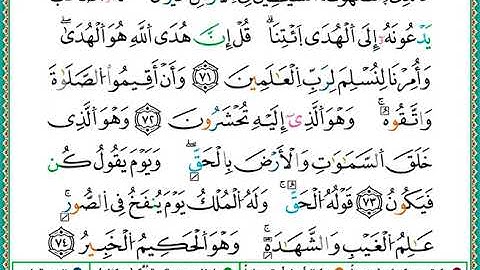 يَدْعُونَهُۥٓ إِلَى الْهُدَى ائْتِنَا ۗ قُلْ إِنَّ هُدَى اللَّهِ هُوَ الْهُدَىٰ ۖ
وَأُمِرْنَا لِنُسْلِمَ لِرَبِّ الْعَالَمِينَ ﴿٧١﴾ وَأَنْ أَقِيمُوا الصَّلَوٰةَ
وَاتَّقُوهُ ۚ وَهُوَ الَّذِيٓ إِلَيْهِ تُحْشَرُونَ ﴿٧٢﴾ وَهُوَ الَّذِي
خَلَقَ السَّمَاوَاتِ وَالْأَرْضَ بِالْحَقِّ ۖ وَيَوْمَ يَقُولُ كُن
فَيَكُونُ ﴿٧٣﴾ قَوْلُهُ الْحَقُّ ۚ وَلَهُ الْمُلْكُ يَوْمَ يُنفَخُ فِي الصُّورِ ۚ
عَالِمُ الْغَيْبِ وَالشَّهَادَةِ ۚ وَهُوَ الْحَكِيمُ الْخَبِيرُ ﴿٧٤﴾